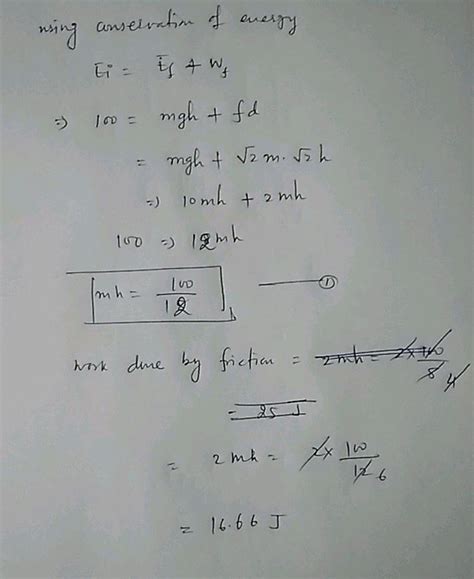 using conservation of energy
Ei = Ef + Wf
⇒ 100 = mgh + fd
= mgh + √2 m · √2 h
⇒ 10mh + 2mh
100 ⇒ 12mh
mh = 100/12 ①
work done by friction = 2mh = 2×100/8 4
= 25 J
= 2mh = 2× 100/12 6
= 16.66 J